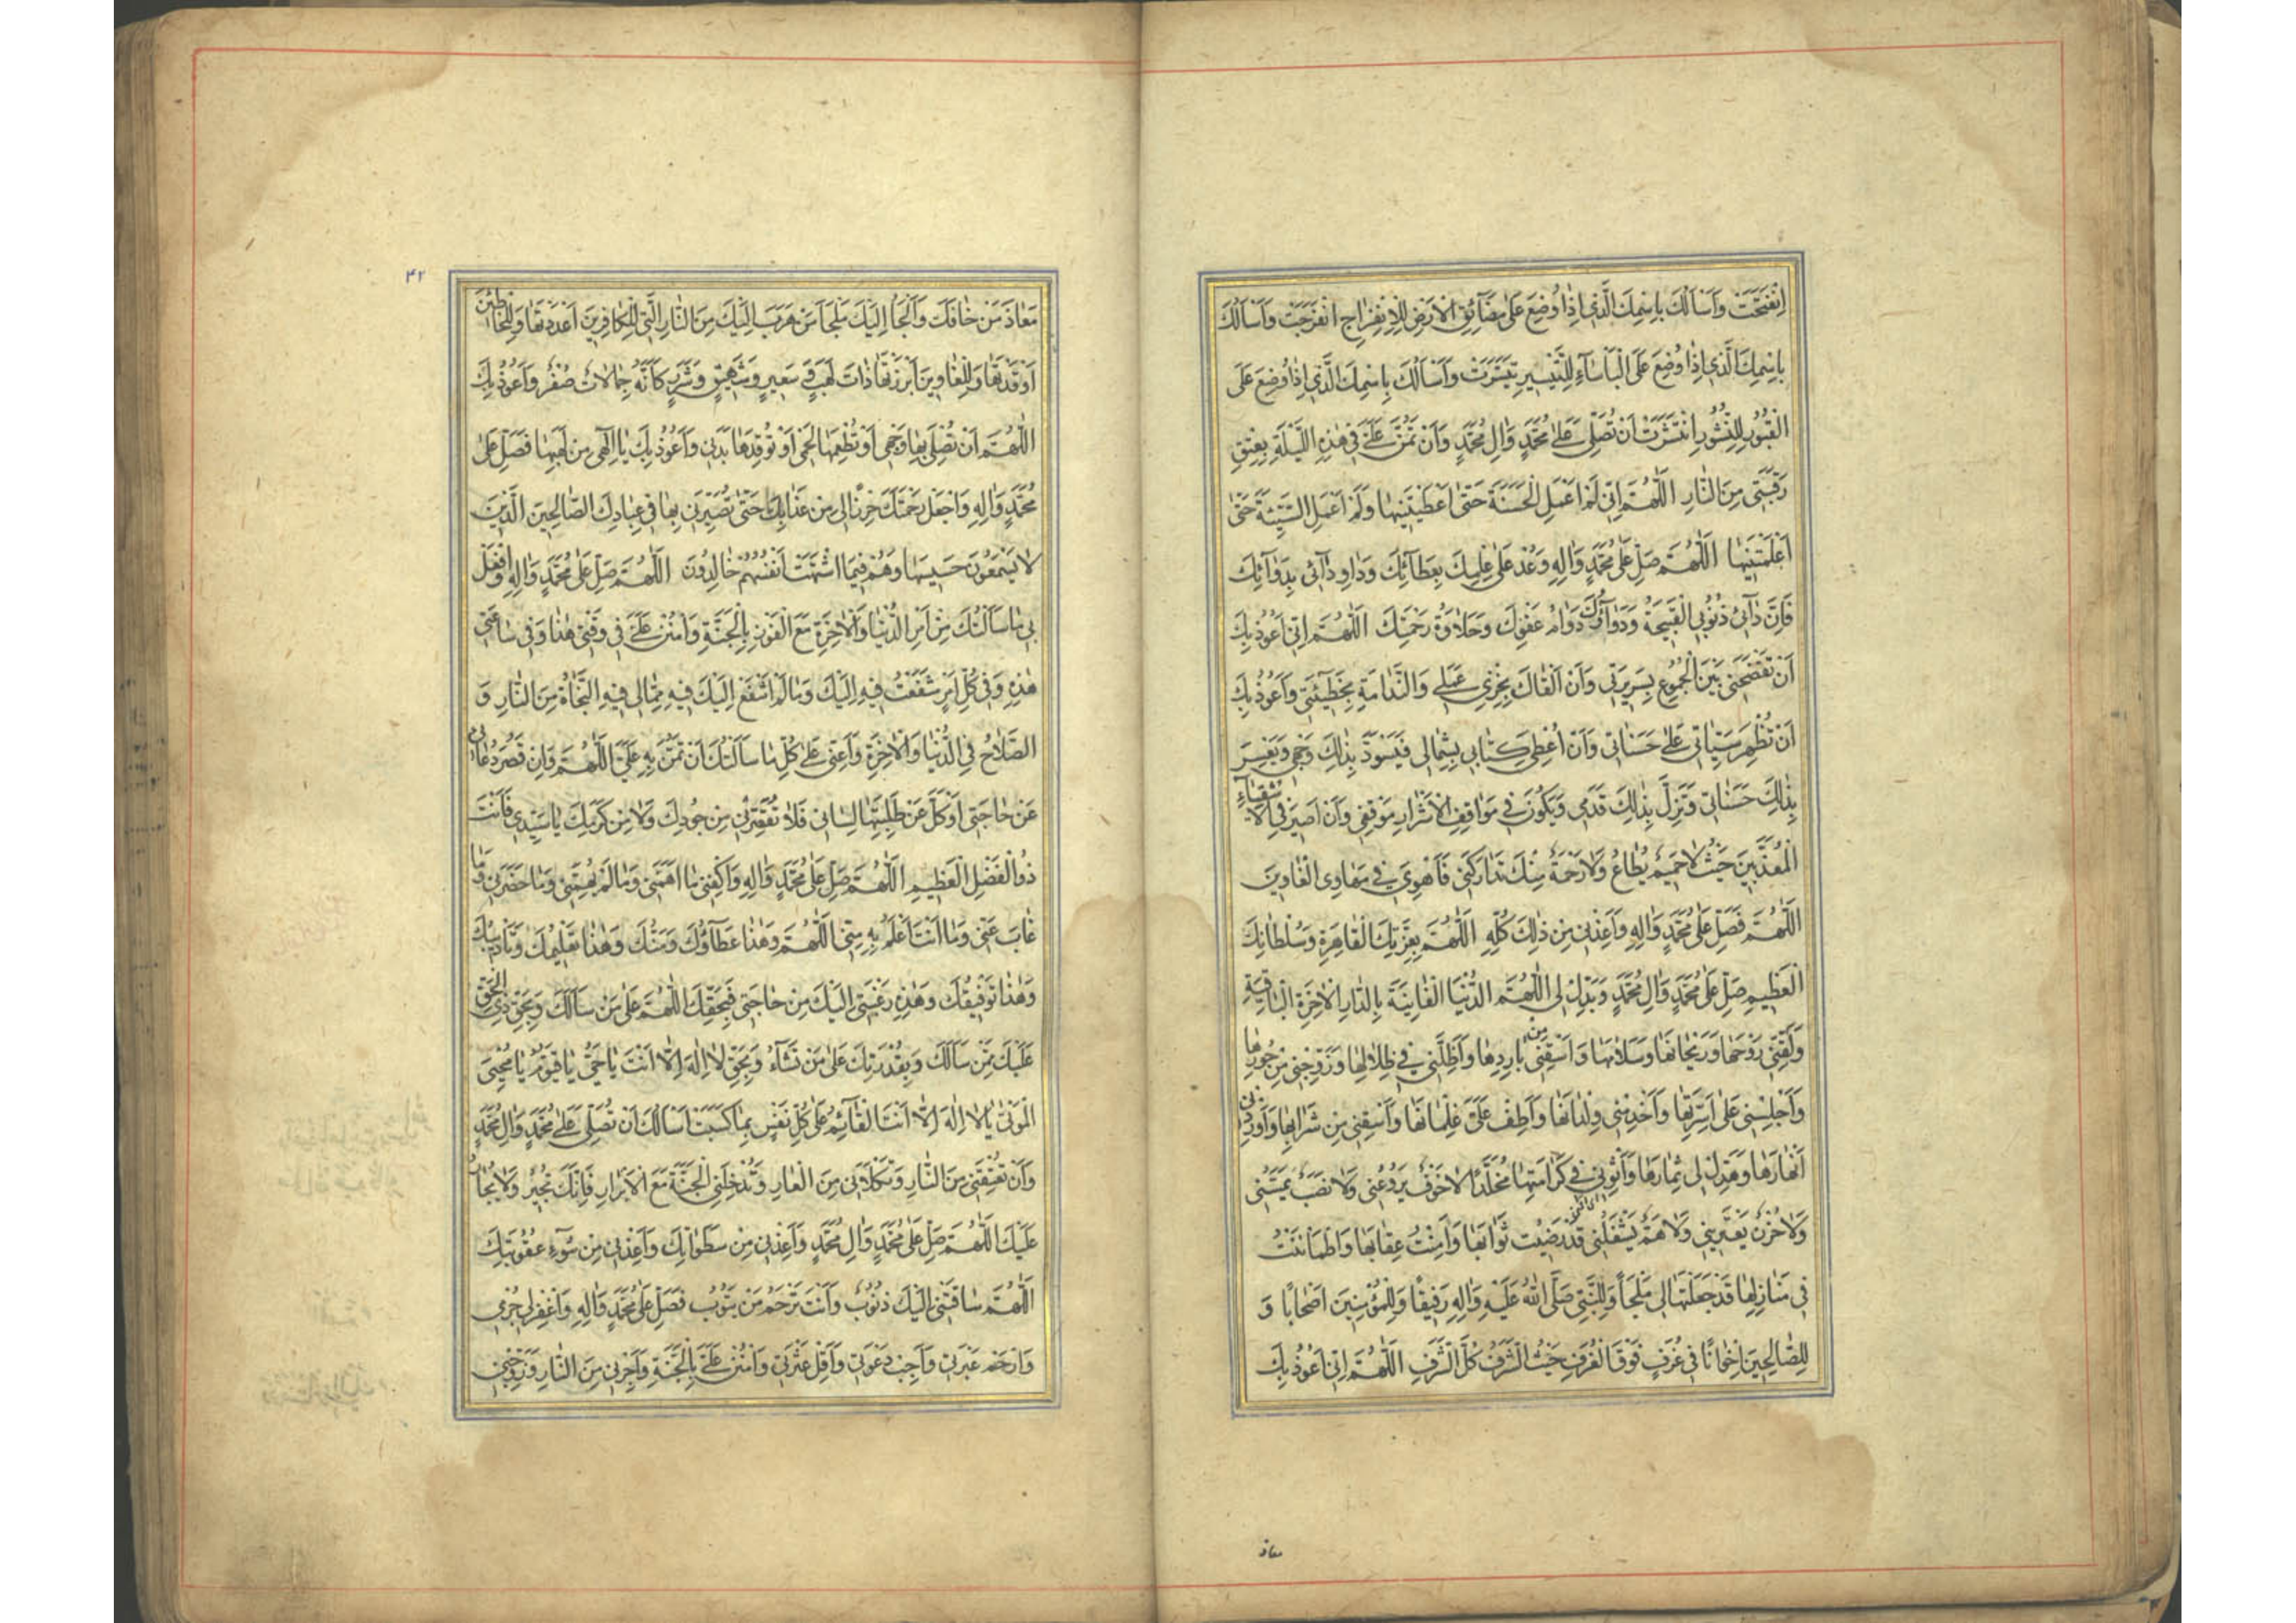 اِنْفَتَحَتْ وَاَسْاَلُكَ بِاسْمِكَ الَّذي اِذٰا وُضِعَ عَلٰى مَضٰآئِقِ الْاَرْضِ لِلْاِنْفِرٰاجِ انْفَرَجَتْ وَاَسْاَلُكَ
بِاسْمِكَ الَّذي اِذٰا وُضِعَ عَلَى الْبَاْسٰآءِ لِلتَّيْسيرِ تَيَسَّرَتْ وَاَسْاَلُكَ بِاسْمِكَ الَّذي اِذٰا وُضِعَ عَلَى
الْقُبُورِ لِلنُّشُورِ اِنْتَشَرَتْ اَنْ تُصَلِّيَ عَلٰى مُحَمَّدٍ وَاٰلِ مُحَمَّدٍ وَاَنْ تَمُنَّ عَلَيَّ في هٰذِهِ اللَّيْلَةِ بِعِتْقِ
رَقَبَتي مِنَ النّٰارِ اَللّٰهُمَّ اِنّي لَمْ اَعْمَلِ الْحَسَنَةَ حَتّٰى اَعْطَيْتَنيهٰا وَلَمْ اَعْمَلِ السَّيِّئَةَ حَتّٰى
اَعْلَمْتَنيهٰا اَللّٰهُمَّ صَلِّ عَلٰى مُحَمَّدٍ وَاٰلِهِ وَعُدْ عَلٰى عِلْمِكَ بِعَطٰآئِكَ وَدٰاوِ دٰآئي بِدَوٰآئِكَ
فَاِنَّ دٰآئي ذُنُوبِيَ الْقَبيحَةُ وَدَوٰآؤُكَ دَوٰامُ عَفْوِكَ وَحَلٰاوَةُ رَحْمَتِكَ اَللّٰهُمَّ اِنّي اَعُوذُ بِكَ
اَنْ تَفْضَحَني بَيْنَ الْجُمُوعِ بِسَريرَتي وَاَنْ اَلْقٰاكَ بِخِزْيِ عَمَلي وَالنَّدٰامَةِ بِخَطيئَتي وَاَعُوذُ بِكَ
اَنْ تُظْهِرَ سَيِّئٰاتي عَلٰى حَسَنٰاتي وَاَنْ اُعْطٰى كِتٰابي بِشِمٰالي فَيَسْوَدَّ بِذٰلِكَ وَجْهي وَيَعْسِرَ
بِذٰلِكَ حَسَنٰاتي وَتَزِلَّ بِذٰلِكَ قَدَمي وَيَكُونَ في مَوٰاقِفِ الْاَشْرٰارِ مَوْقِفي وَاَنْ اَصيرَ فِي الْاَشْقِيٰآءِ
الْمُعَذَّبينَ حَيْثُ لٰا حَميمٌ يُطٰاعُ وَلٰا رَحْمَةٌ مِنْكَ تَدٰارَكُني فَاَهْوِيَ في مَهٰاوِى الْغٰاوينَ
اَللّٰهُمَّ فَصَلِّ عَلٰى مُحَمَّدٍ وَاٰلِهِ وَاَعِذْني مِنْ ذٰلِكَ كُلِّهِ اَللّٰهُمَّ بِعِزَّتِكَ الْقٰاهِرَةِ وَسُلْطٰانِكَ
الْعَظيمِ صَلِّ عَلٰى مُحَمَّدٍ وَاٰلِ مُحَمَّدٍ وَبَدِّلْ لِى اللّٰهُمَّ الدُّنْيَا الْفٰانِيَةَ بِالدّٰارِ الْاٰخِرَةِ الْبٰاقِيَةِ
وَلَقِّني رَوْحَهٰا وَرَيْحٰانَهٰا وَسَلٰامَهٰا وَاسْقِني مِنْ بٰارِدِهٰا وَاَظِلَّني في ظِلٰالِهٰا وَزَوِّجْني مِنْ حُورِهٰا
وَاَجْلِسْني عَلٰى اَسِرَّتِهٰا وَاَخْدِمْني وِلْدٰانَهٰا وَاَطِفْ عَلَيَّ غِلْمٰانَهٰا وَاَسْقِني مِنْ شَرٰابِهٰا وَاَوْرِدْني
اَنْهٰارَهٰا وَهَدِّلْ لي ثِمٰارَهٰا وَاَثْوِني في كَرٰامَتِهٰا مُخَلَّدًا لٰا خَوْفٌ يَرُوعُني وَلٰا نَصَبٌ يَمَسُّني
وَلٰا حُزْنٌ يَعْتَريني وَلٰا هَمٌّ يَشْغَلُني قَدْ رَضيتُ ثَوٰابَهٰا وَاَمِنْتُ عِقٰابَهٰا وَاطْمَاْنَنْتُ
في مَنٰازِلِهٰا قَدْ جَعَلْتَهٰا لي مَلْجَأً وَلِلنَّبِيِّ صَلَّى اللّٰهُ عَلَيْهِ وَاٰلِهِ رَفيقًا وَلِلْمُؤْمِنينَ اَصْحٰابًا وَ
لِلصّٰالِحينَ اِخْوٰانًا في غُرَفٍ فَوْقَ الْغُرَفِ حَيْثُ الشَّرَفُ كُلُّ الشَّرَفِ اَللّٰهُمَّ اِنّي اَعُوذُ بِكَ
معاذ
۴۲
مَعٰاذَ مَنْ خٰافَكَ وَاَلْجَأُ اِلَيْكَ مَلْجَأَ مَنْ هَرَبَ اِلَيْكَ مِنَ النّٰارِ الَّتي لِلْكٰافِرينَ اَعْدَدْتَهٰا وَلِلْخٰاطِئينَ
اَوْقَدْتَهٰا وَلِلْغٰاوينَ اَبْرَزْتَهٰا ذٰاتَ لَهَبٍ وَسَعيرٍ وَشَهيقٍ وَشَرَرٍ كَاَنَّهُ جِمٰالٰاتٌ صُفْرٌ وَاَعُوذُ بِكَ
اَللّٰهُمَّ اَنْ تُصْلِيَ بِهٰا وَجْهي اَوْ تُطْعِمَهٰا لَحْمي اَوْ تُوقِدَهٰا بَدَني وَاَعُوذُ بِكَ يٰا اِلٰهي مِنْ لَهَبِهٰا فَصَلِّ عَلٰى
مُحَمَّدٍ وَاٰلِهِ وَاجْعَلْ رَحْمَتَكَ حِرْزًا لي مِنْ عَذٰابِكَ حَتّٰى تُصَيِّرَني بِهٰا في عِبٰادِكَ الصّٰالِحينَ الَّذينَ
لٰا يَسْمَعُونَ حَسيسَهٰا وَهُمْ فيمَا اشْتَهَتْ اَنْفُسُهُمْ خٰالِدُونَ اَللّٰهُمَّ صَلِّ عَلٰى مُحَمَّدٍ وَاٰلِهِ وَافْعَلْ
بي مٰا سَاَلْتُكَ مِنْ اَمْرِ الدُّنْيٰا وَالْاٰخِرَةِ مَعَ الْفَوْزِ بِالْجَنَّةِ وَامْنُنْ عَلَيَّ في وَقْتي هٰذٰا وَفي سٰاعَتي
هٰذِهِ وَفي كُلِّ اَمْرٍ شَفَعْتُ فيهِ اِلَيْكَ وَمٰا لَمْ اَشْفَعْ اِلَيْكَ فيهِ مِمّٰا لي فيهِ النَّجٰاةُ مِنَ النّٰارِ وَ
الصَّلٰاحُ فِي الدُّنْيٰا وَالْاٰخِرَةِ وَاَعِنّي عَلٰى كُلِّ مٰا سَاَلْتُكَ اَنْ تَمُنَّ بِهِ عَلَيَّ اَللّٰهُمَّ وَاِنْ قَصُرَ دُعٰائي
عَنْ حٰاجَتي اَوْ كَلَّ عَنْ طَلَبِهٰا لِسٰاني فَلٰا تُقَصِّرْني مِنْ جُودِكَ وَلٰا مِنْ كَرَمِكَ يٰا سَيِّدي فَاَنْتَ
ذُو الْفَضْلِ الْعَظيمِ اَللّٰهُمَّ صَلِّ عَلٰى مُحَمَّدٍ وَاٰلِهِ وَاكْفِني مٰا اَهَمَّني وَمٰا لَمْ يُهِمَّني وَمٰا حَضَرَني وَمٰا
غٰابَ عَنّي وَمٰا اَنْتَ اَعْلَمُ بِهِ مِنّي اَللّٰهُمَّ وَهٰذٰا عَطٰآؤُكَ وَمَنُّكَ وَهٰذٰا تَعْليمُكَ وَتَاْديبُكَ
وَهٰذٰا تَوْفيقُكَ وَهٰذِهِ رَغْبَتي اِلَيْكَ مِنْ حٰاجَتي فَبِحَقِّكَ اللّٰهُمَّ عَلٰى مَنْ سَاَلَكَ وَبِحَقِّ ذِي الْحَقِّ
عَلَيْكَ مِمَّنْ سَاَلَكَ وَبِقُدْرَتِكَ عَلٰى مَنْ تَشٰآءُ وَبِحَقِّ لٰا اِلٰهَ اِلّٰا اَنْتَ يٰا حَيُّ يٰا قَيُّومُ يٰا مُحْيِيَ
الْمَوْتٰى يٰا لٰا اِلٰهَ اِلّٰا اَنْتَ الْقٰآئِمُ عَلٰى كُلِّ نَفْسٍ بِمٰا كَسَبَتْ اَسْاَلُكَ اَنْ تُصَلِّيَ عَلٰى مُحَمَّدٍ وَاٰلِ مُحَمَّدٍ
وَاَنْ تُعْتِقَني مِنَ النّٰارِ وَتَكْلَاَني مِنَ الْعٰارِ وَتُدْخِلَنِي الْجَنَّةَ مَعَ الْاَبْرٰارِ فَاِنَّكَ تُجيرُ وَلٰا يُجٰارُ
عَلَيْكَ اَللّٰهُمَّ صَلِّ عَلٰى مُحَمَّدٍ وَاٰلِ مُحَمَّدٍ وَاَعِذْني مِنْ سَطَوٰاتِكَ وَاَعِذْني مِنْ سُوٓءِ عُقُوبَتِكَ
اَللّٰهُمَّ سٰاقَتْني اِلَيْكَ ذُنُوبٌ وَاَنْتَ تَرْحَمُ مَنْ يَتُوبُ فَصَلِّ عَلٰى مُحَمَّدٍ وَاٰلِهِ وَاغْفِرْ لي جُرْمي
وَارْحَمْ عَبْرَتي وَاَجِبْ دَعْوَتي وَاَقِلْ عَثْرَتي وَامْنُنْ عَلَيَّ بِالْجَنَّةِ وَاَجِرْني مِنَ النّٰارِ وَزَوِّجْني